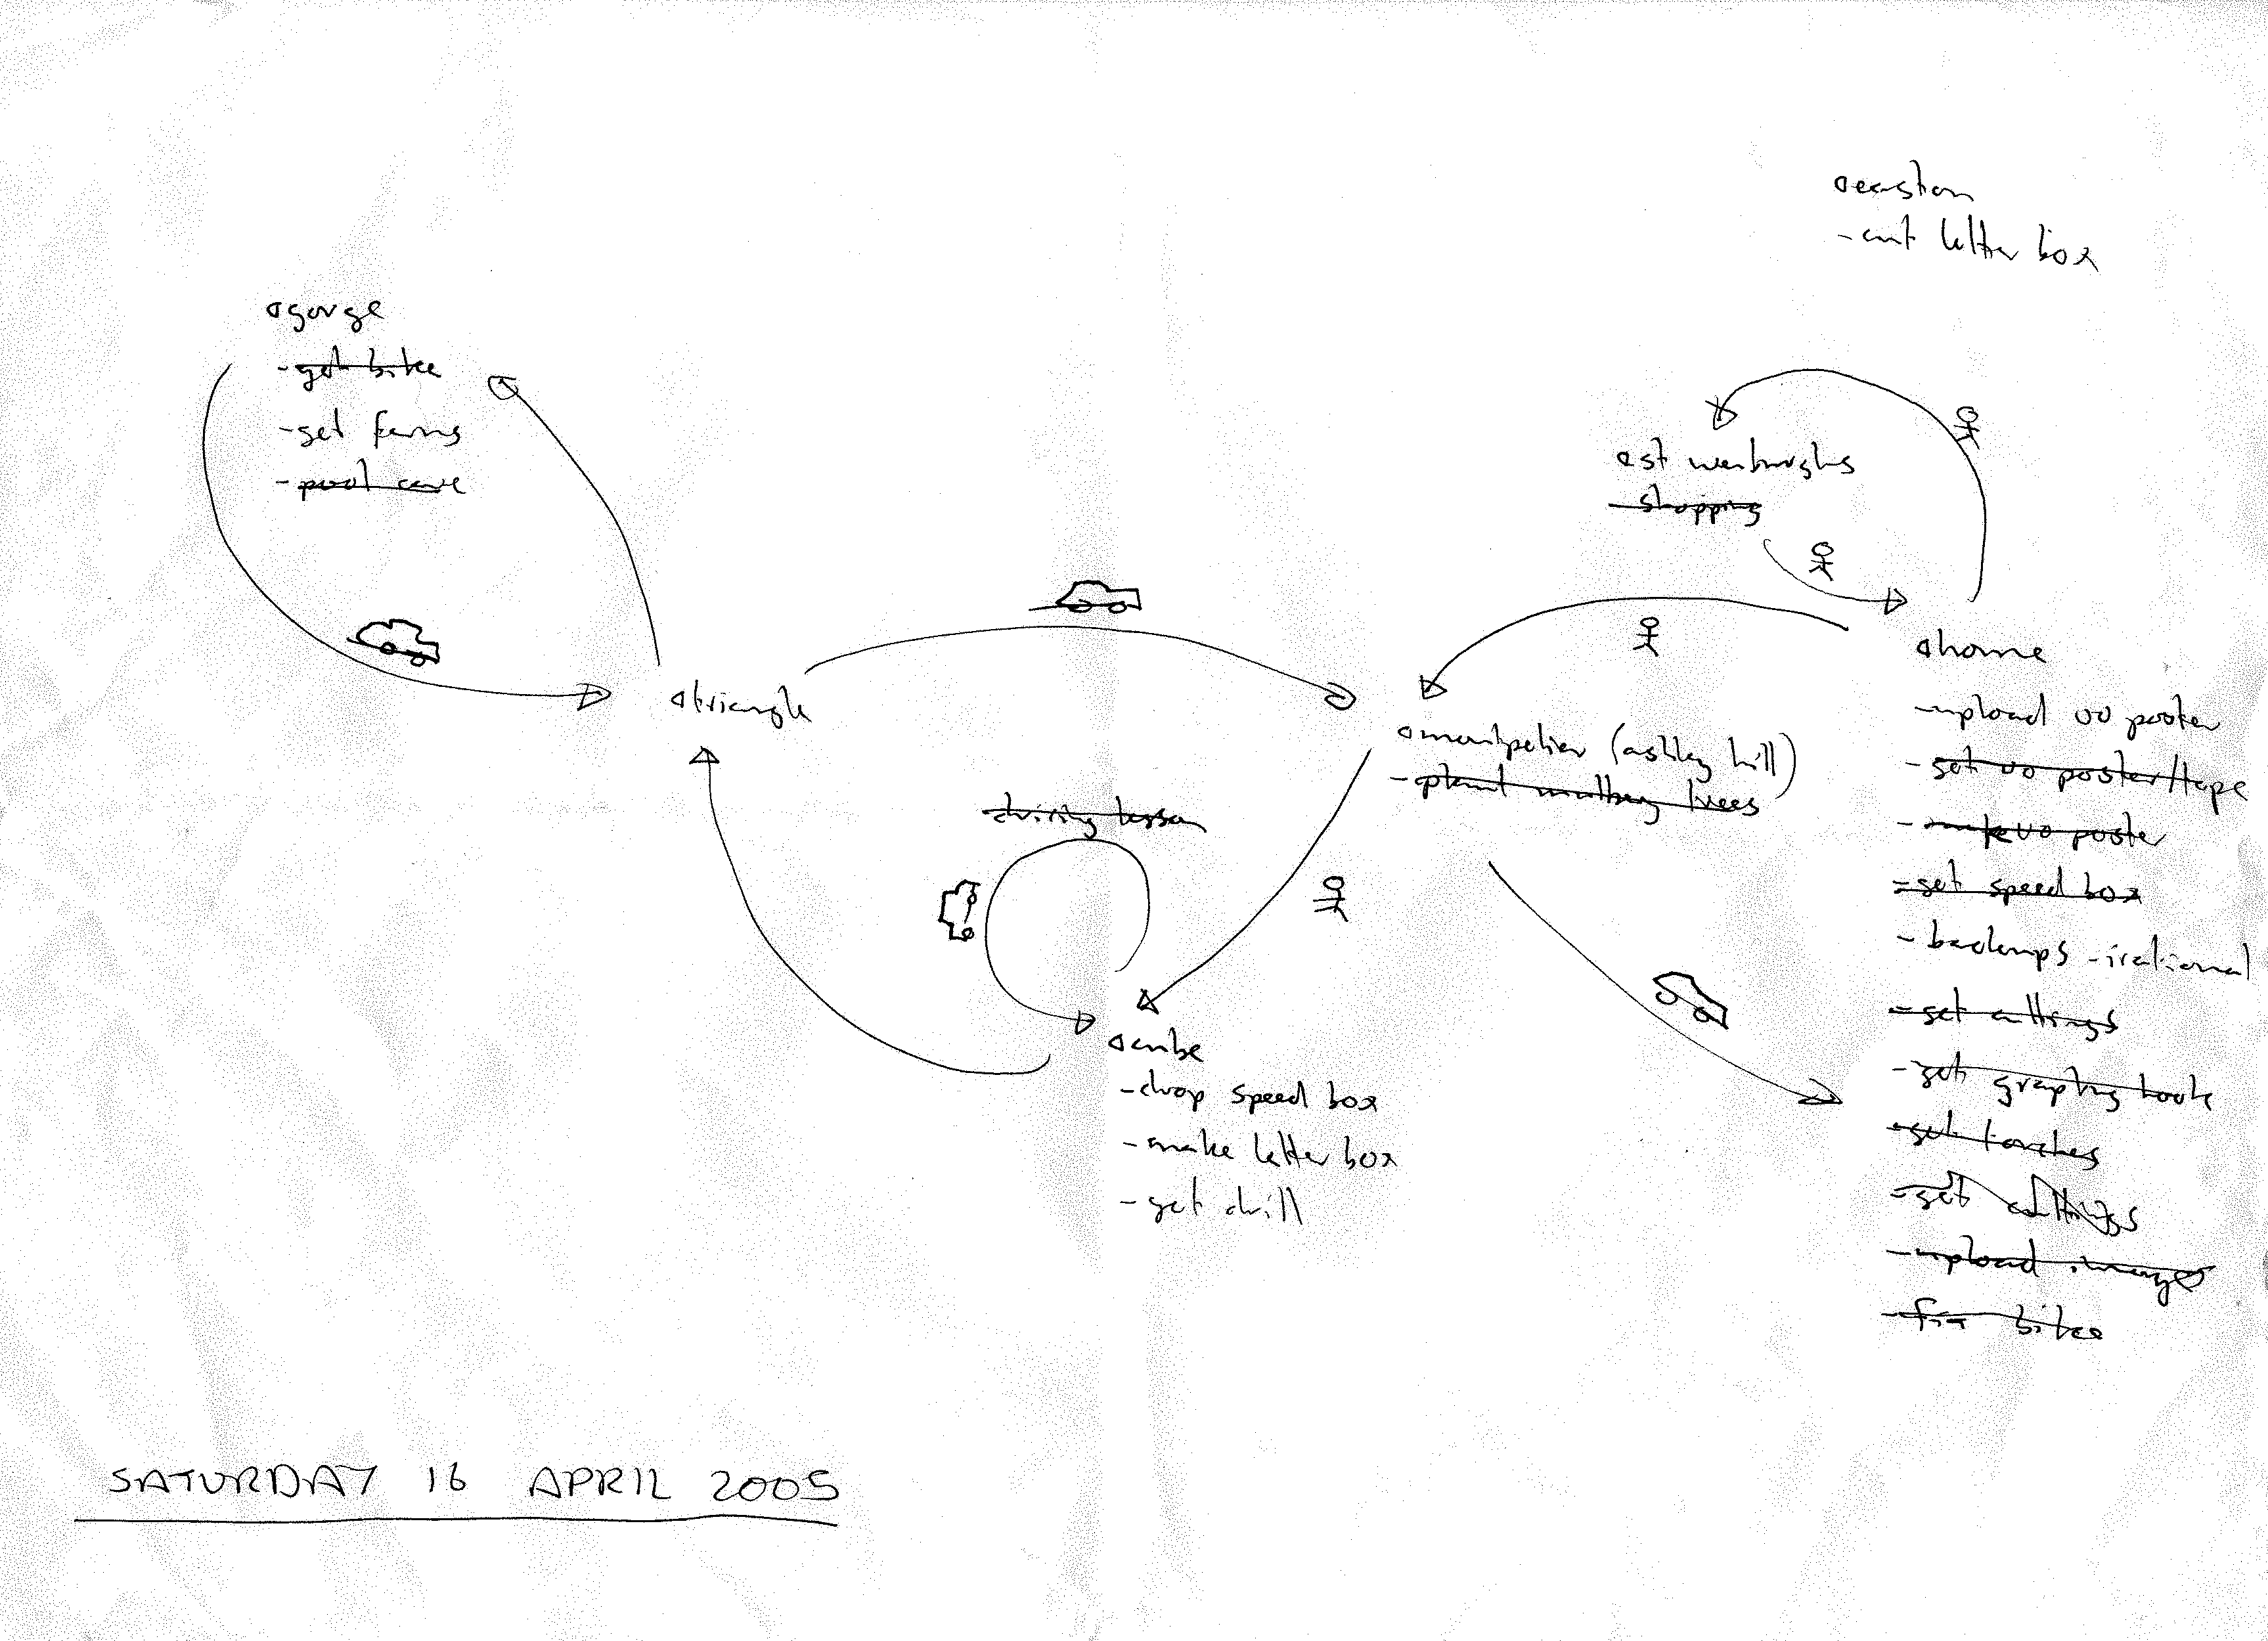 easton
- cut letter box
gorge
- get bike
- get ferns
- pool cave
st werburghs
- shopping
home
- upload uo poster
- get uo poster/tape
- make uo poster
- get speed box
- backups - irational
- get cuttings
- get graphg book
- get torches
- get cuttings
- upload image
- fix bike
triangle
montpelier (ashley hill)
- plant mulberry trees
driving lesson
cube
- drop speed box
- make letter box
- get drill
SATURDAY 16 APRIL 2005